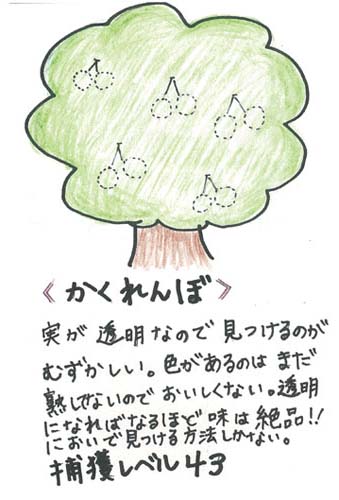 《かくれんぼ》
実が透明なので見つけるのが
むずかしい。色があるのはまだ
熟してないのでおいしくない。透明
になればなるほど味は絶品!!
においで見つける方法しかない。
捕獲レベル43